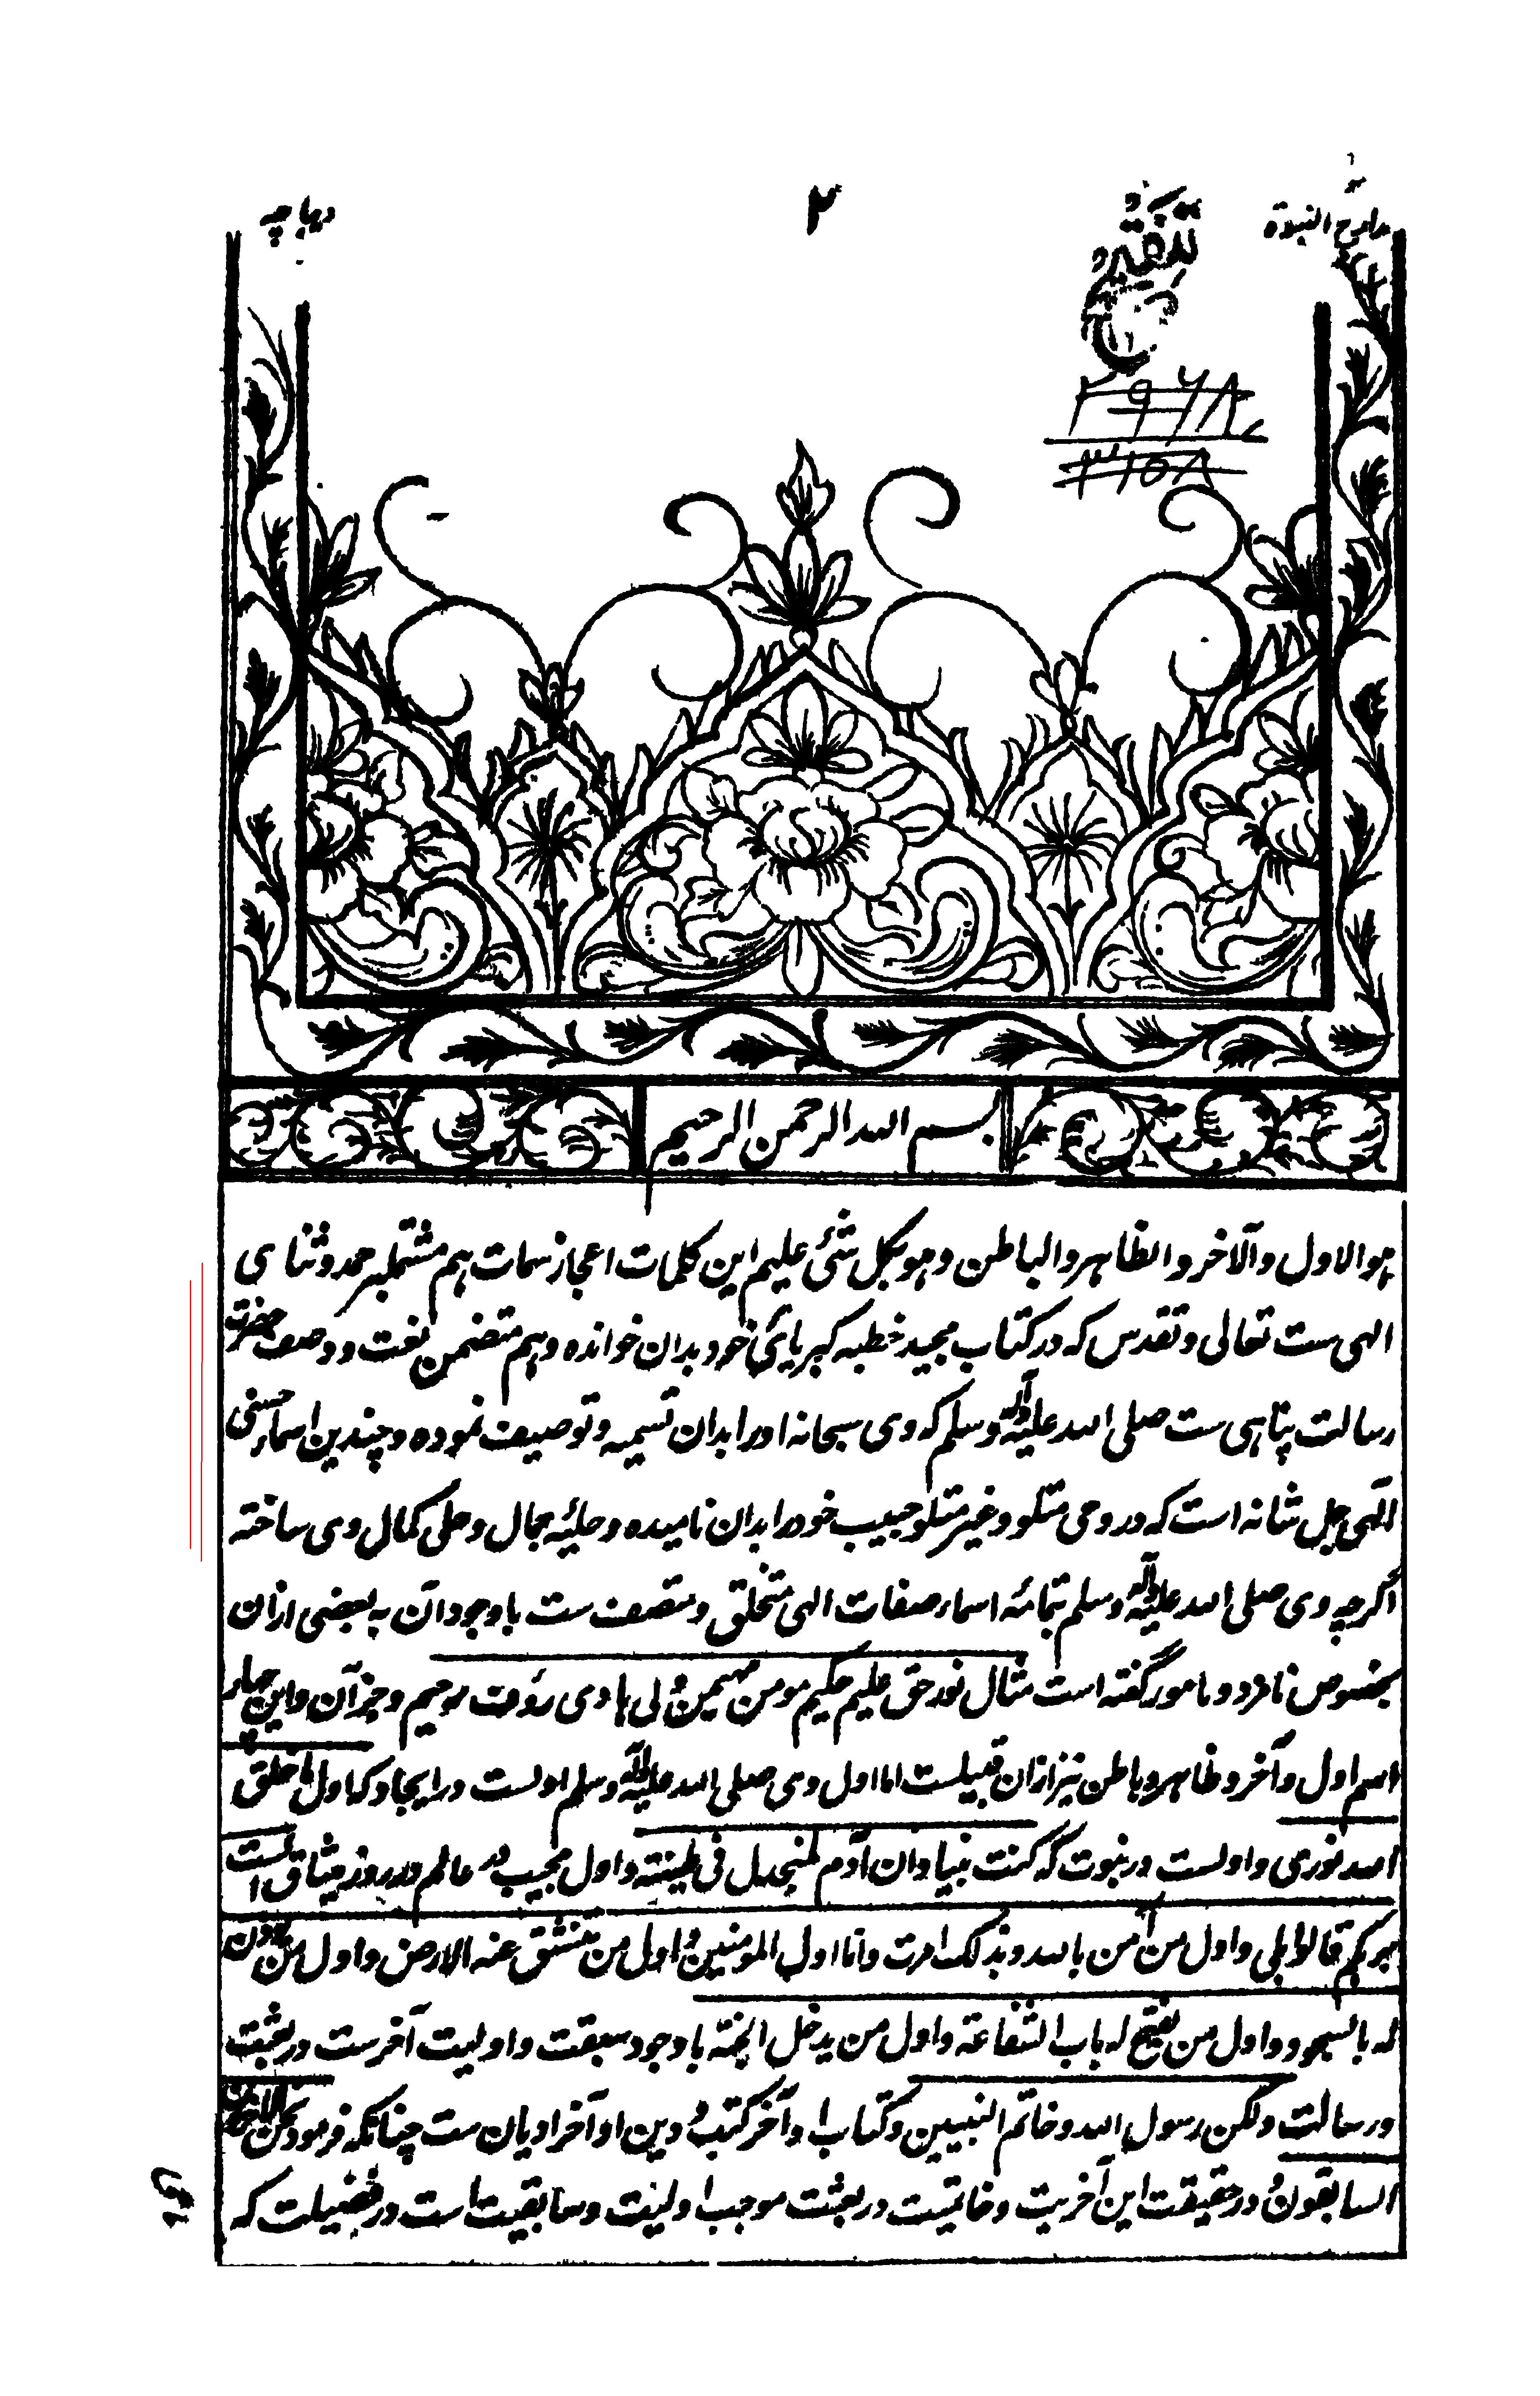 مدارج النبوة
۲
دیباچه
۲۹۶۸
۳۱۵۸
بسم الله الرحمن الرحیم
هو الاول والآخر والظاهر والباطن وهو بکل شئ علیم این کلمات اعجاز سمات هم مشتمل بر حمد و ثنای
الهی ست تعالی و تقدس که در کتاب مجید خطبه کبریائی خود بدان خوانده و هم متضمن نعت و وصف حضرت
رسالت پناهی ست صلی الله علیه وآله وسلم که وی سبحانه او را بدان تسمیه و توصیف نموده و چندین اسماء حسنی
الهی جل شانه است که در وحی متلو و غیر متلو حبیب خود را بدان نامیده و حلیه جمال و حلی کمال وی ساخته
اگرچه وی صلی الله علیه وآله وسلم بتمامه اسماء صفات الهی متخلق و متصف ست باوجود آن به بعضی ازان
بخصوص نامزد و نامور گفته است مثال نور حق علیم حکیم مومن مهیمن ولی هادی رؤف رحیم و جز آن و این چهار
اسم اول و آخر و ظاهر و باطن نیز ازان قبیلست اما اول وی صلی الله علیه وآله وسلم اولست در ایجاد که اول ما خلق
الله نوری و اولست در نبوت که کنت نبیا وان آدم لمنجدل فی طینته و اول مجیب در عالم در روز میثاق الست
بربکم قالوا بلی و اول من آمن بالله و بذلک امرت وانا اول المومنین و اول من تنشق عنه الارض و اول من یوذن
له بالسجود و اول من یفتح له باب الشفاعة و اول من یدخل الجنة باوجود سبقت و اولیت آخرست در بعثت
و رسالت ولکن رسول الله وخاتم النبیین و کتاب او آخر کتب و دین او آخر ادیان ست چنانکه فرمود نحن الآخرون
السابقون و در حقیقت این آخریت و خاتمیت در بعثت موجب اولیت و سابقیت است در فضیلت که